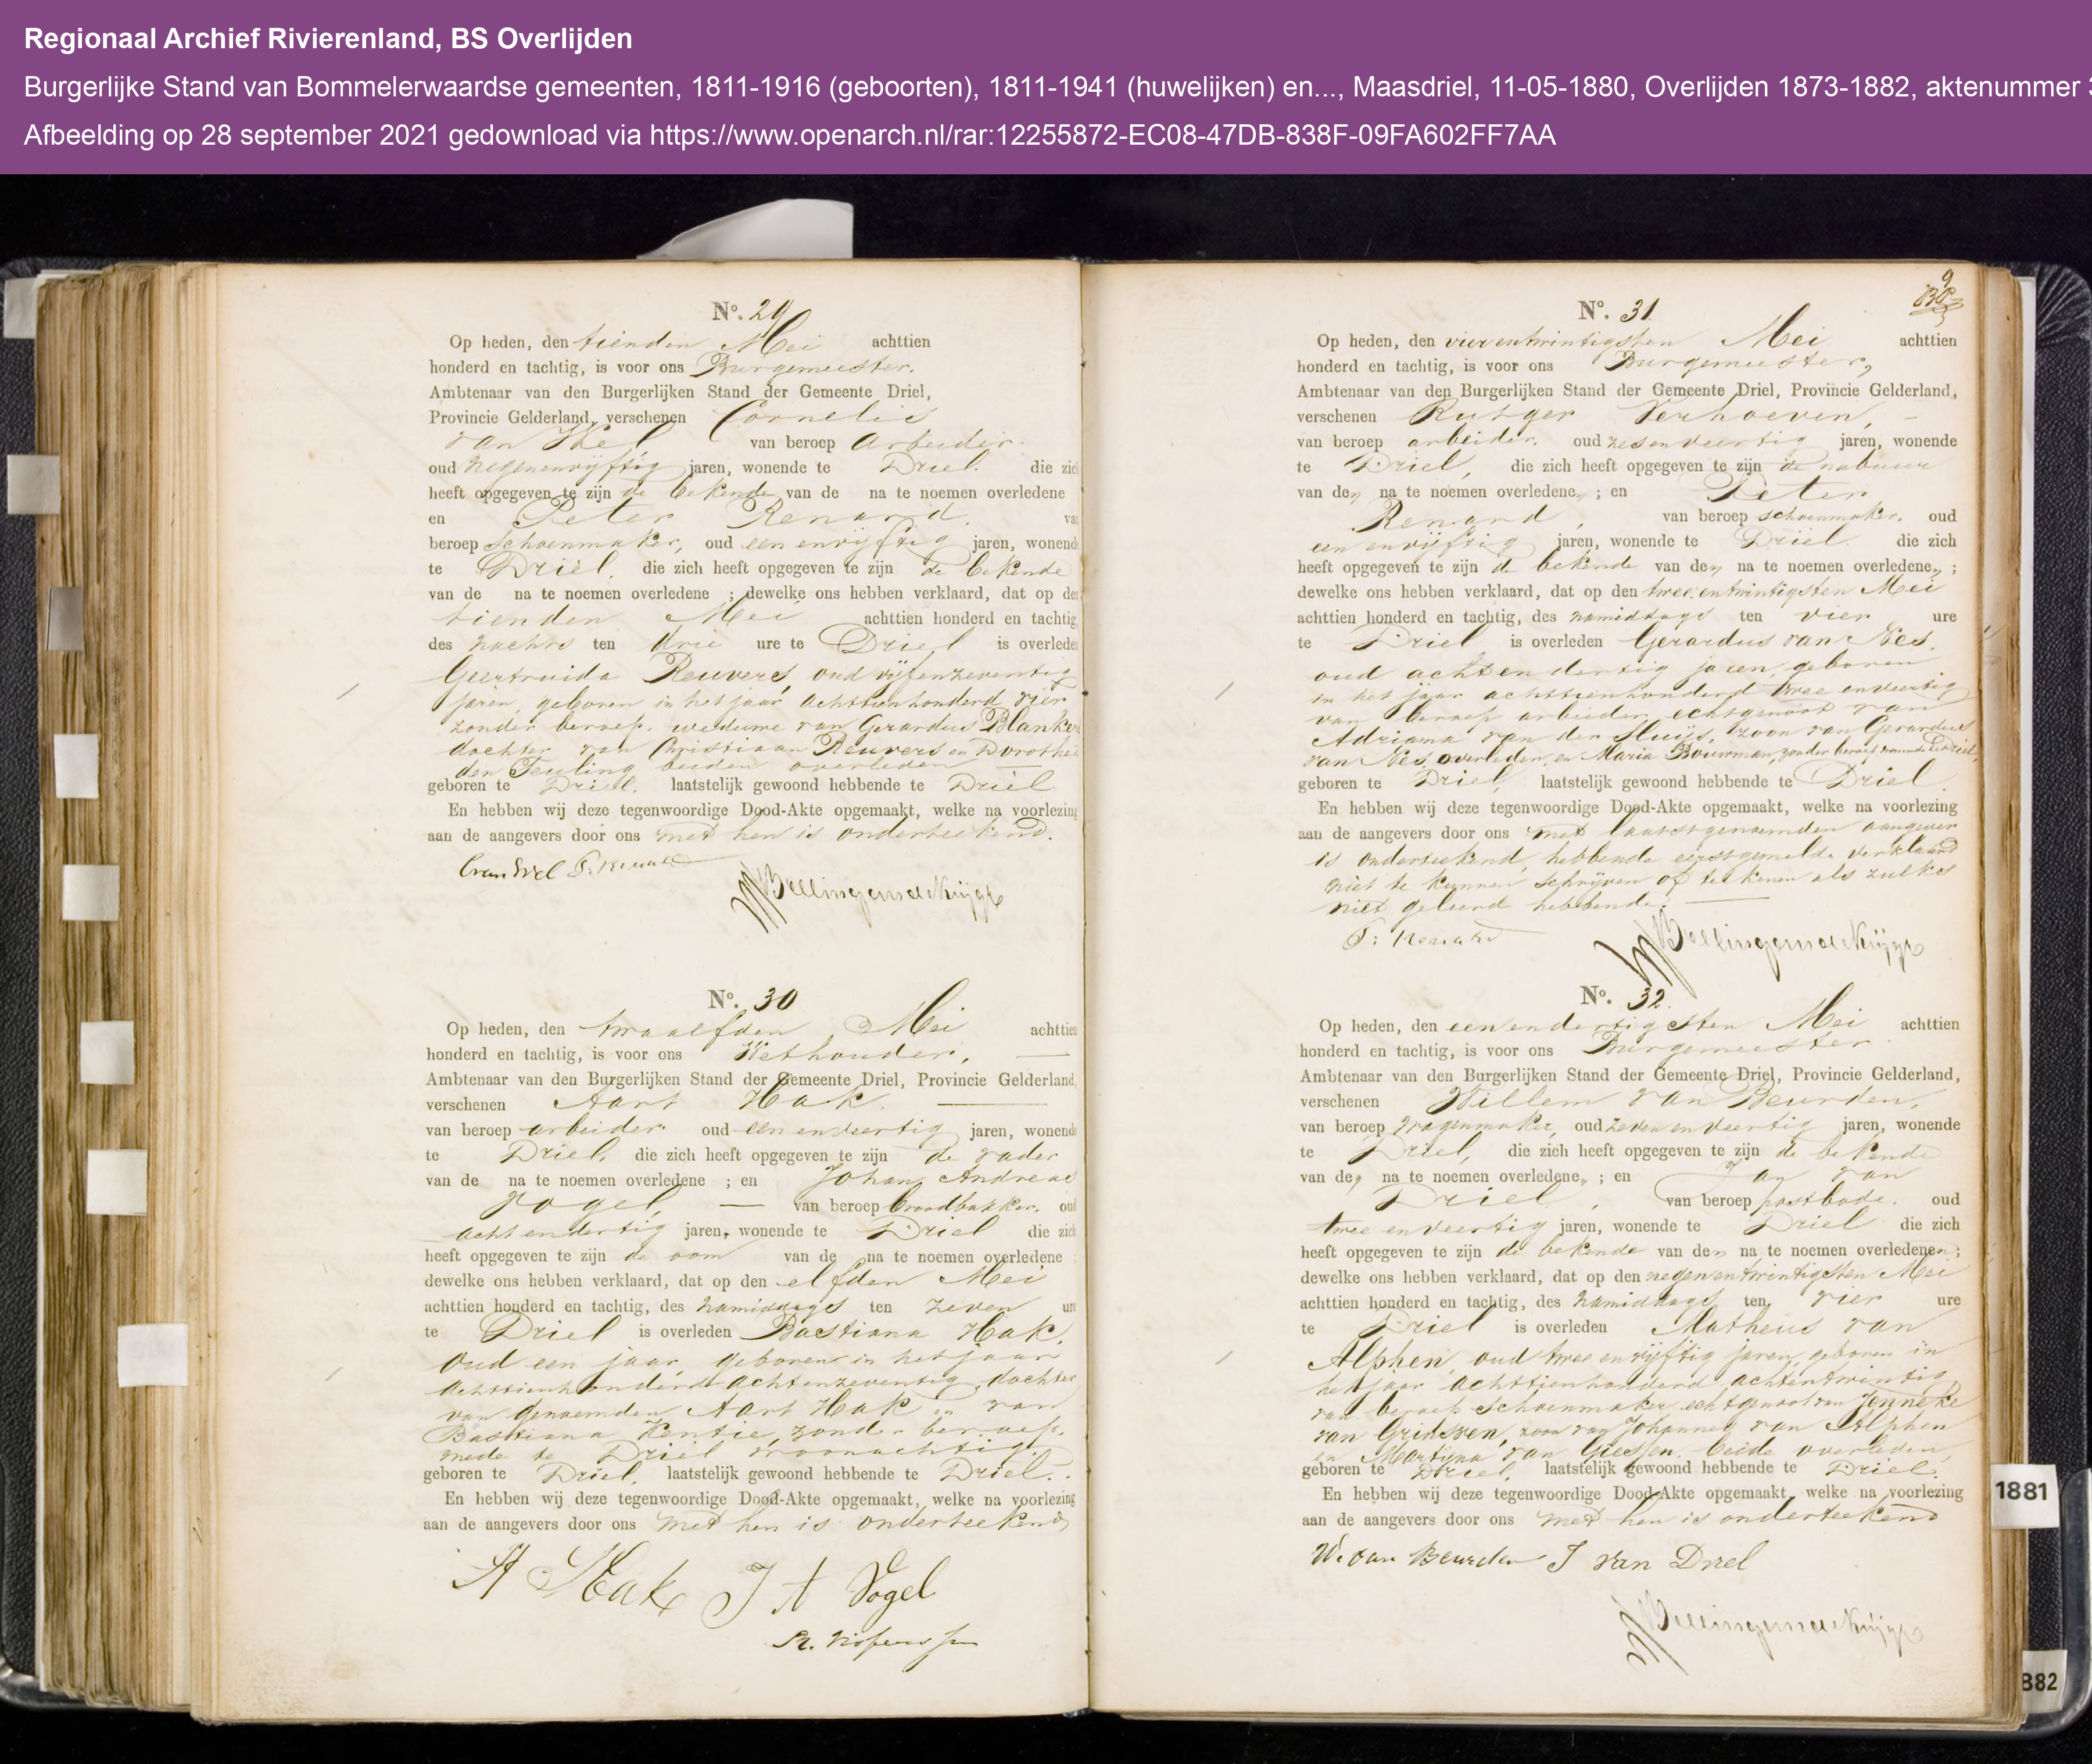 Regionaal Archief Rivierenland, BS Overlijden
Burgerlijke Stand van Bommelerwaardse gemeenten, 1811-1916 (geboorten), 1811-1941 (huwelijken) en..., Maasdriel, 11-05-1880, Overlijden 1873-1882, aktenummer 3
Afbeelding op 28 september 2021 gedownload via https://www.openarch.nl/rar:12255872-EC08-47DB-838F-09FA602FF7AA
No. 29
Op heden, den tienden Mei achttien
honderd en tachtig, is voor ons Burgemeester.
Ambtenaar van den Burgerlijken Stand der Gemeente Driel,
Provincie Gelderland, verschenen Cornelis
van Wel van beroep arbeider.
oud negenenvyftig jaren, wonende te Driel. die zich
heeft opgegeven te zijn de bekende van de na te noemen overledene
en Peter Renard. van
beroep Schoenmaker, oud een envyftig jaren, wonende
te Driel, die zich heeft opgegeven te zijn de bekende
van de na te noemen overledene ; dewelke ons hebben verklaard, dat op den
tienden Mei achttien honderd en tachtig,
des nachts ten drie ure te Driel is overleden
Geertruida Reuvers, oud vijfenzeventig
jaren, geboren in het jaar achttienhonderd vier
zonder beroep. weduwe van Gerardus Blanker
dochter van Christiaan Reuvers en Dorothea
den Teuling beiden overleden
geboren te Driel. laatstelijk gewoond hebbende te Driel
En hebben wij deze tegenwoordige Dood-Akte opgemaakt, welke na voorlezing
aan de aangevers door ons met hen is onderteekend.
C van Wel P. Renard
No. 30
Op heden, den twaalfden Mei achttien
honderd en tachtig, is voor ons Wethouder,
Ambtenaar van den Burgerlijken Stand der Gemeente Driel, Provincie Gelderland,
verschenen Aart Hak.
van beroep arbeider oud een enveertig jaren, wonende
te Driel, die zich heeft opgegeven te zijn de vader
van de na te noemen overledene ; en Johan Andreas
Vogel, van beroep broodbakker. oud
acht endertig jaren, wonende te Driel die zich
heeft opgegeven te zijn de oom van de na te noemen overledene ;
dewelke ons hebben verklaard, dat op den elfden Mei
achttien honderd en tachtig, des namiddags ten zeven ure
te Driel is overleden Bastiana Hak,
oud een jaar, geboren in het jaar
achttienhonderd achtenzeventig, dochter
van genoemden Aart Hak en van
Bastiana Kentie, zonder beroep.
mede te Driel woonachtig.
geboren te Driel, laatstelijk gewoond hebbende te Driel.
En hebben wij deze tegenwoordige Dood-Akte opgemaakt, welke na voorlezing
aan de aangevers door ons met hen is onderteekend
A Hak J A Vogel
9
No. 31
Op heden, den vierentwintigsten Mei achttien
honderd en tachtig, is voor ons Burgemeester,
Ambtenaar van den Burgerlijken Stand der Gemeente Driel, Provincie Gelderland,
verschenen Rutger Verhoeven,
van beroep arbeider. oud zesenveertig jaren, wonende
te Driel, die zich heeft opgegeven te zijn de nabuur
van den na te noemen overledenen ; en Peter
Renard, van beroep schoenmaker. oud
een envijftig jaren, wonende te Driel. die zich
heeft opgegeven te zijn de bekende van den na te noemen overledenen ;
dewelke ons hebben verklaard, dat op den tweeentwintigsten Mei
achttien honderd en tachtig, des namiddags ten vier ure
te Driel is overleden Gerardus van Nes.
oud achtendertig jaren, geboren
in het jaar achttienhonderd twee enveertig
van beroep arbeider, echtgenoot van
Adriana van der Sluijs, zoon van Gerardus
van Nes, overleden, en Maria Bouwman, zonder beroep wonende te Driel,
geboren te Driel, laatstelijk gewoond hebbende te Driel
En hebben wij deze tegenwoordige Dood-Akte opgemaakt, welke na voorlezing
aan de aangevers door ons met laatstgenoemden aangever
is onderteekend, hebbende eerstgemelde verklaard
niet te kunnen schrijven of teekenen als zulks
niet geleerd hebbende.
P: Renard
No. 32.
Op heden, den eenendertigsten Mei achttien
honderd en tachtig, is voor ons Burgemeester
Ambtenaar van den Burgerlijken Stand der Gemeente Driel, Provincie Gelderland,
verschenen Willem van Beurden,
van beroep wagenmaker, oud zevenenveertig jaren, wonende
te Driel, die zich heeft opgegeven te zijn de bekende
van den na te noemen overledenen ; en Jan van
Driel, van beroep postbode. oud
twee enveertig jaren, wonende te Driel die zich
heeft opgegeven te zijn de bekende van den na te noemen overledenen ;
dewelke ons hebben verklaard, dat op den negenentwintigsten Mei
achttien honderd en tachtig, des namiddags ten vier ure
te Driel is overleden Matheus van
Alphen, oud twee envijftig jaren, geboren in
het jaar achttienhonderd achtentwintig,
van beroep Schoenmaker, echtgenoot van Jenneke
van Grinsven, zoon van Johannes van Alphen
en Martijna van Giessen, beide overleden,
geboren te Driel, laatstelijk gewoond hebbende te Driel.
En hebben wij deze tegenwoordige Dood-Akte opgemaakt, welke na voorlezing
aan de aangevers door ons met hen is onderteekend
W. van Beurden J van Driel
1881
882